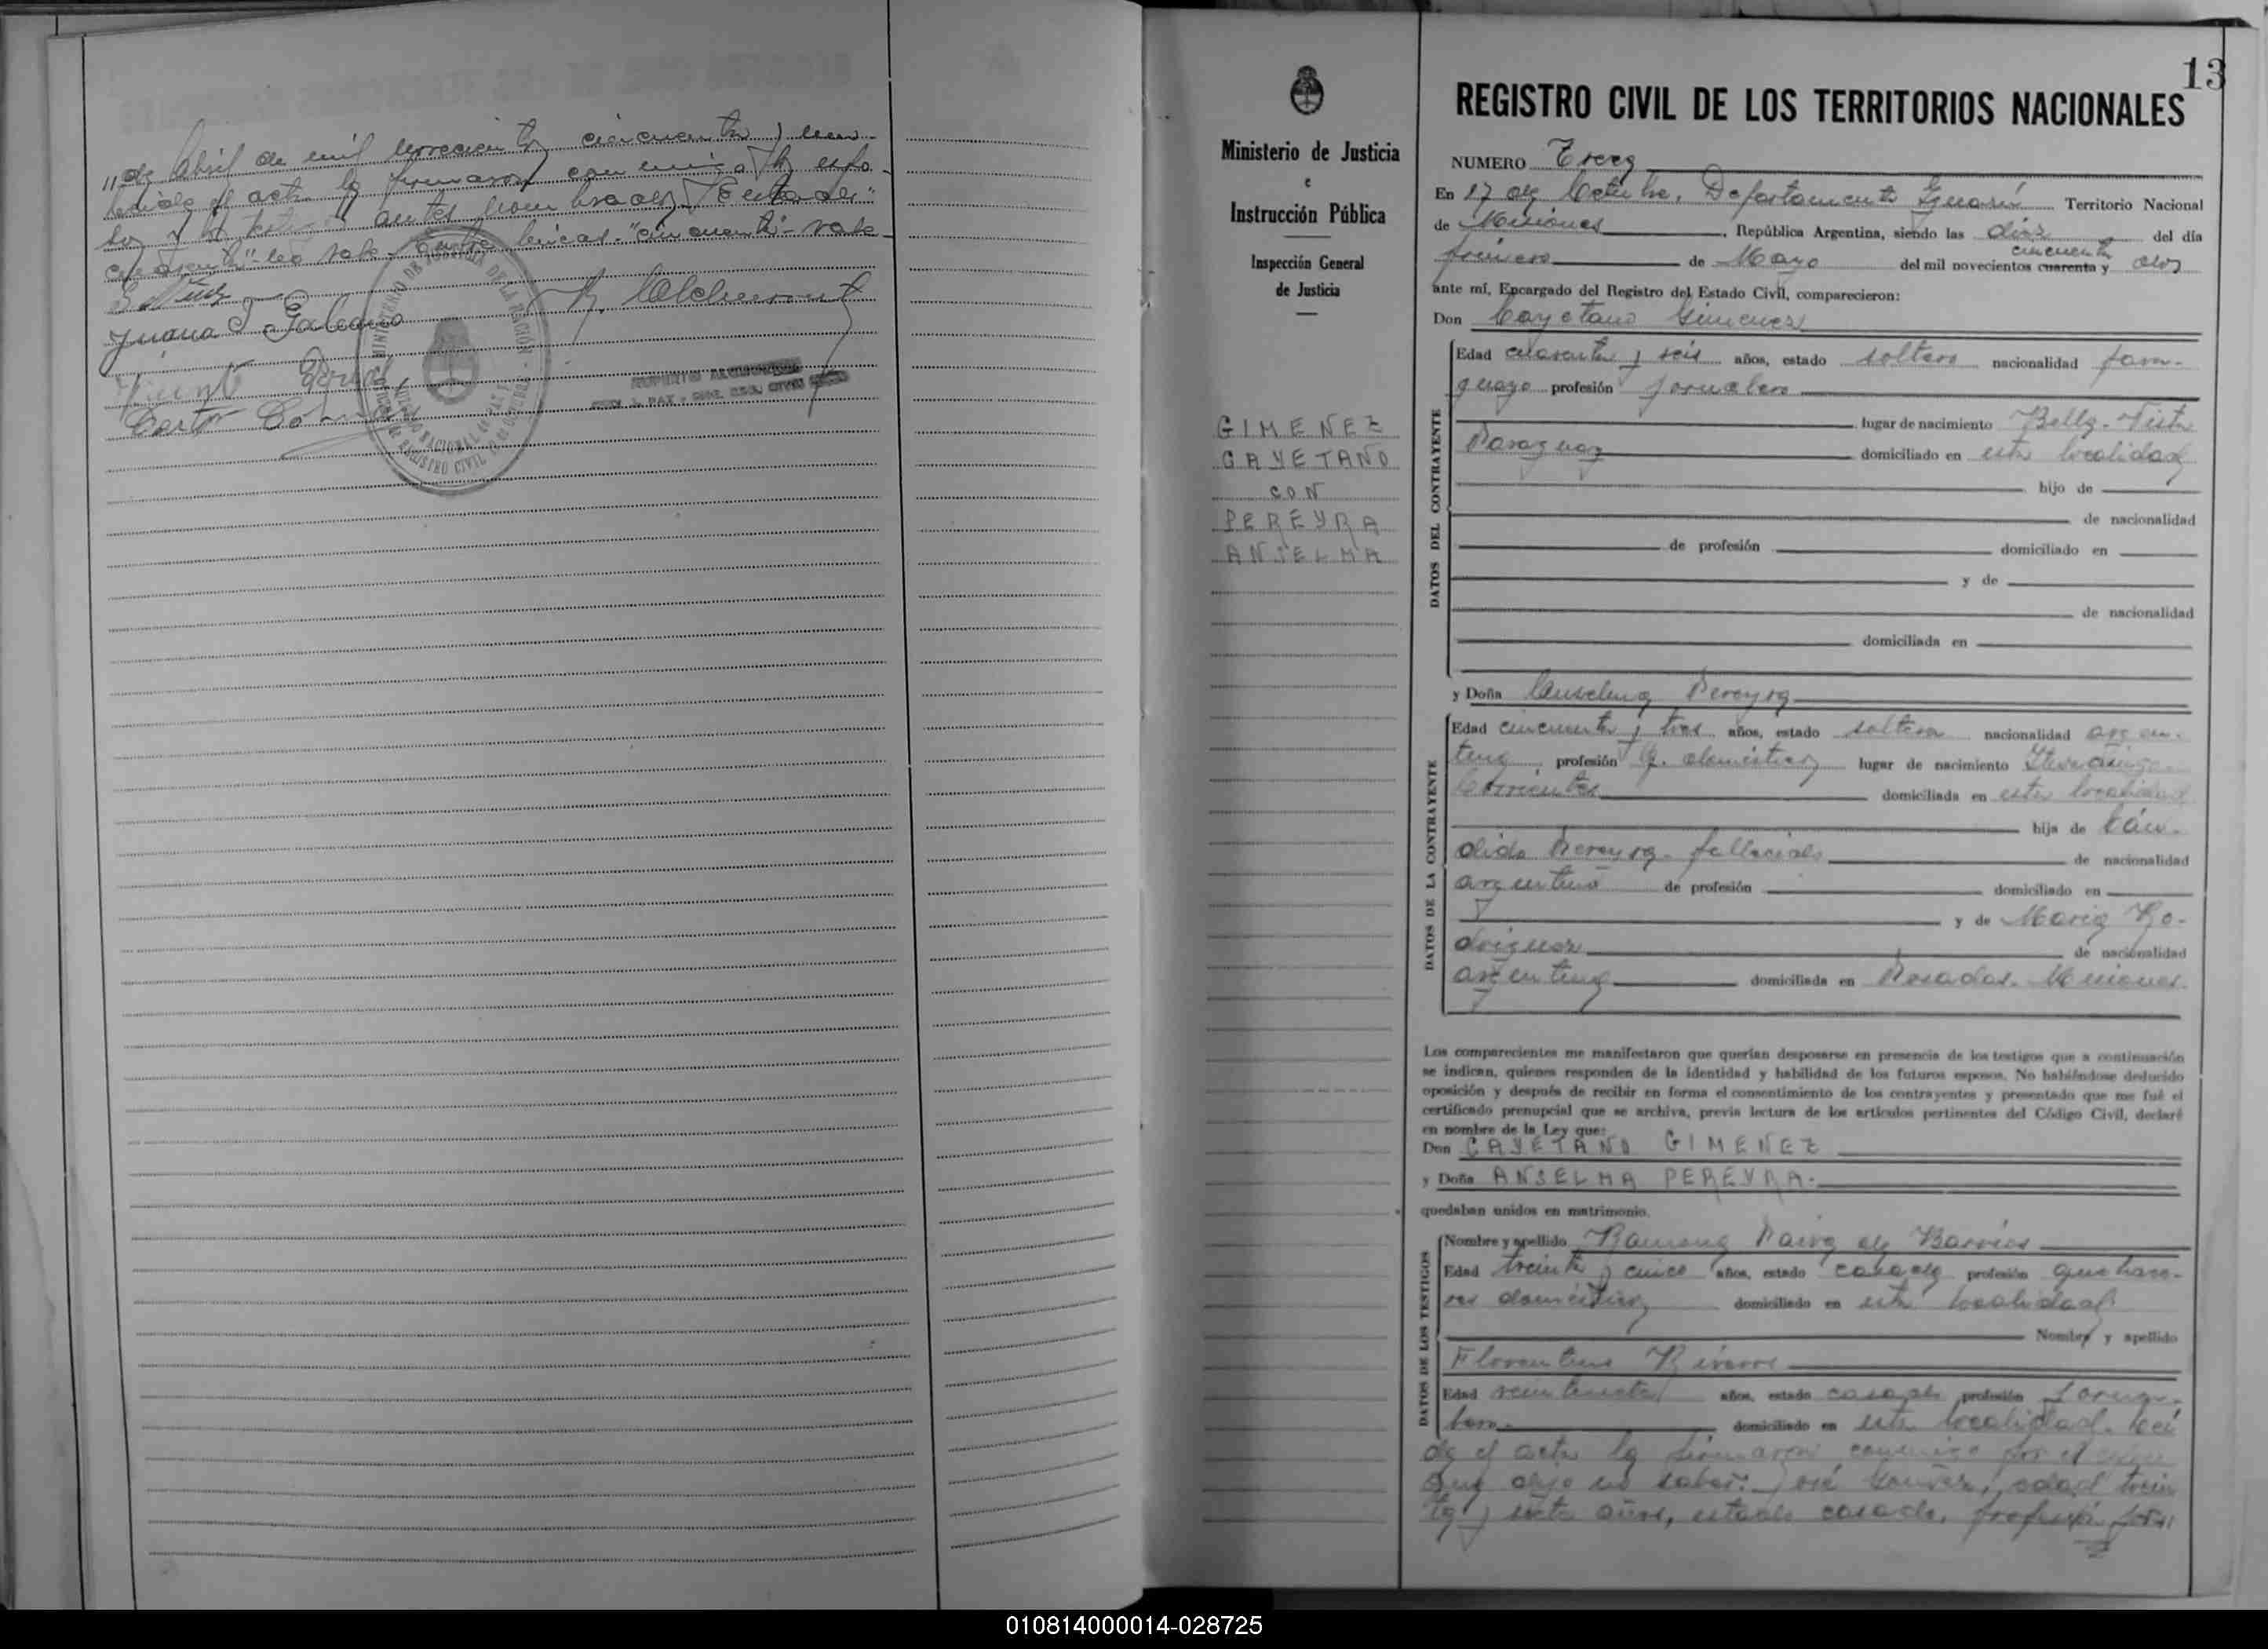 "de Abril de mil novecientos cincuenta y uno
leido el acta la firmaron conmigo los espo
sos y los testigos antes nombrados. Testado:
cuarenta "no vale. Entre lineas: "cincuenta" - vale
Juana T. Galeano
MINISTERIO DE JUSTICIA DE LA NACIÓN
REGISTRO CIVIL
13
REGISTRO CIVIL DE LOS TERRITORIOS NACIONALES
Ministerio de Justicia
e
Instrucción Pública
Inspección General
de Justicia
GIMENEZ
CAYETANO
CON
PEREYRA
ANSELMA
NUMERO Trece
En 17 de Octubre, Departamento Iguazú Territorio Nacional
de Misiones, República Argentina, siendo las diez del día
primero de Mayo del mil novecientos cuarenta y cincuenta dos
ante mí, Encargado del Registro del Estado Civil, comparecieron:
Don Cayetano Gimenez
Edad cuarenta y seis años, estado soltero nacionalidad para-
guayo profesión jornalero
lugar de nacimiento Bella-Vista
Paraguay domiciliado en esta localidad
hijo de
de nacionalidad
de profesión domiciliado en
y de
de nacionalidad
domiciliada en
y Doña Anselma Pereyra
Edad cincuenta y tres años, estado soltera nacionalidad argen-
tina profesión q. domésticos lugar de nacimiento Ituzaingo-
Corrientes domiciliada en esta localidad
hija de Cán-
dido Pereyra- fallecido de nacionalidad
argentino de profesión domiciliado en
y de Maria Ro-
driguez de nacionalidad
argentina domiciliada en Posadas. Misiones.
DATOS DEL CONTRAYENTE
DATOS DE LA CONTRAYENTE
Los comparecientes me manifestaron que querían desposarse en presencia de los testigos que a continuación
se indican, quienes responden de la identidad y habilidad de los futuros esposos. No habiéndose deducido
oposición y después de recibir en forma el consentimiento de los contrayentes y presentado que me fué el
certificado prenupcial que se archiva, previa lectura de los artículos pertinentes del Código Civil, declaré
en nombre de la Ley que:
Don CAYETANO GIMENEZ
y Doña ANSELMA PEREYRA.
quedaban unidos en matrimonio.
Nombre y apellido Ramona Paiva de Barrios
Edad treinta y cinco años, estado casada profesión quehace-
res domésticos domiciliado en esta localidad
Nombre y apellido
Florentino Riveros
Edad veintisiete años, estado casado profesión Jorna-
lero. domiciliado en esta localidad. Leí
da el acta la firmaron conmigo por el
que dijo no saber: José edad trein
ta y siete años, estado casado, profesión jorna
DATOS DE LOS TESTIGOS
010814000014-028725